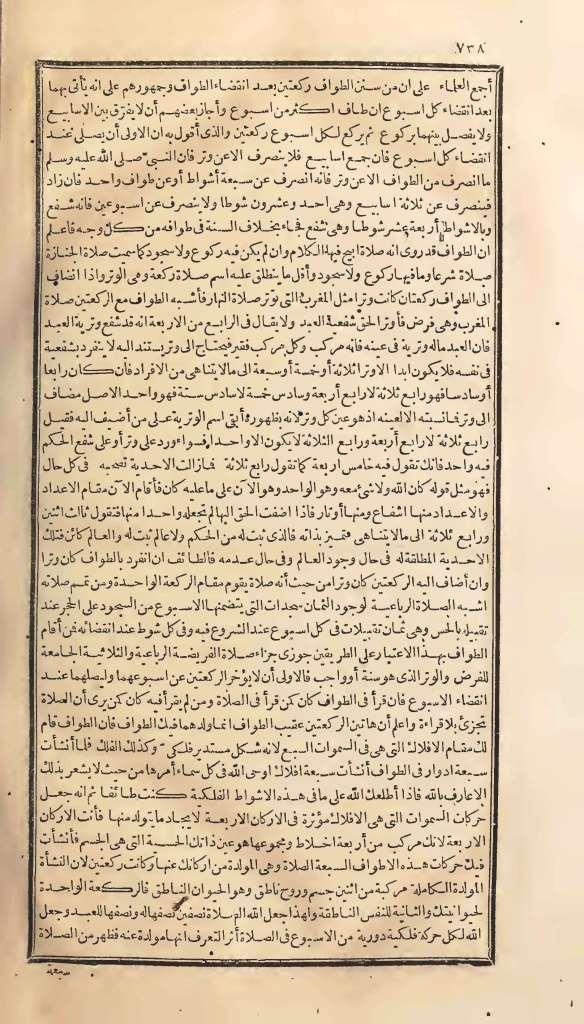 ٧٣٨
أجمع العلماء على ان من سنن الطواف ركعتين بعد انقضاء الطواف وجمهورهم على انه يأتى بهما
بعد انقضاء كل اسبوع ان طاف اكثر من اسبوع وأجاز بعضهم أن لا يفرق بين الاسابيع
ولا يفصل بينهما بركوع ثم يركع لكل اسبوع ركعتين والذى أقول به ان الاولى أن يصلى عند
انقضاء كل اسبوع فان جمع اسابيع فلا ينصرف الا عن وتر فان النبى صلى الله عليه وسلم
ما انصرف من الطواف الا عن وتر فانه انصرف عن سبعة أشواط أو عن طواف واحد فان زاد
فينصرف عن ثلاثة اسابيع وهى احد وعشرون شوطا ولا ينصرف عن اسبوعين فانه شفع
وبالاشواط أربعة عشر شوطا وهى شفع فجاء بخلاف السنة فى طوافه من كل وجه فاعلم
ان الطواف قد روى انه صلاة ابيح فيها الكلام وان لم يكن فيه ركوع ولا سجود كما سميت صلاة الجنازة
صلاة شرعا وما فيها ركوع ولا سجود وأقل ما ينطلق عليه اسم صلاة ركعة وهى الوتر واذا انضاف
الى الطواف ركعتان كانت وترا مثل المغرب التى توتر صلاة النهار فأشبه الطواف مع الركعتين صلاة
المغرب وهى فرض فأوتر الحق شفعية العبد ولا يقال فى الرابع من الاربعة انه قد شفع وترية العبد
فان العبد ماله وترية فى عينه فانه مركب وكل مركب فقير فيحتاج الى وتر يستند اليه لا ينفرد بشفعية
فى نفسه فلا يكون ابدا الا وترا ثلاثة أو خمسة أو سبعة الى ما لا يتناهى من الافراد فان كان رابعا
أو سادسا فهو رابع ثلاثة لا رابع أربعة وسادس خمسة لا سادس ستة فهو واحد الاصل مضاف
الى وتر فما نسبته الا لعينه اذ هو عين كل وتر لانه بظهوره أبقى اسم الوترية على من أضيف اليه فقيل
رابع ثلاثة لا رابع أربعة ورابع الثلاثة لا يكون الا واحدا فسواء ورد على وتر أو على شفع الحكم
فيه واحد فانك تقول فيه خامس اربعة كما تقول رابع ثلاثة فما زالت الاحدية تصحبه فى كل حال
فهو مثل قوله كان الله ولا شئ معه وهو الواحد وهو الآن على ما عليه كان فأقام الآن مقام الاعداد
والاعداد منها اشفاع ومنها أوتار فاذا اضفت الحق اليها لم تجعله واحدا منها فتقول ثالث اثنين
ورابع ثلاثة الى ما لا يتناهى فتميز بذاته فالذى ثبت له من الحكم ولا عالم ثبت له والعالم كائن فتلك
الاحدية المطلقة له فى حال وجود العالم وفى حال عدمه فالطائف ان انفرد بالطواف كان وترا
وان أضاف اليه الركعتين كان وترا من حيث أنه صلاة يقوم مقام الركعة الواحدة ومن تمم صلاته
اشبه الصلاة الرباعية لوجود الثمان سجدات التى يتضمنها الاسبوع من السجود على الحجر عند
تقبيله بالحس وهى ثمان تقبيلات فى كل اسبوع عند الشروع فيه وفى كل شوط عند انقضائه فمن أقام
الطواف بهذا الاعتبار على الطريقين جوزى جزاء صلاة الفريضة الرباعية والثلاثية الجامعة
للفرض والوتر الذى هو سنة أو واجب فالاولى أن لا يؤخر الركعتين عن اسبوعهما وليصلهما عند
انقضاء الاسبوع فان قرأ فى الطواف كان كمن قرأ فى الصلاة ومن لم يقرأ فيه كان كمن يرى أن الصلاة
تجزئ بلا قراءة واعلم أن هاتين الركعتين عقيب الطواف انما ولدهما فيك الطواف فان الطواف قام
لك مقام الافلاك التى هى فى السموات السبع لانه شكل مستدير فلكى وكذلك الفلك فلما أنشأت
سبعة ادوار فى الطواف أنشأت سبعة افلاك اوحى الله فى كل سماء أمرها من حيث لا يشعر بذلك
الا عارف بالله فاذا أطلعك الله على ما فى هذه الاشواط الفلكية كنت طائفا ثم انه جعل
حركات السموات التى هى الافلاك مؤثرة فى الاركان الاربعة لايجاد ما يتولد منها فأنت الاركان
الاربعة لانك مركب من أربعة اخلاط ومجموعها هو عين ذاتك الحسية التى هى الجسم فأنشأت
فيك حركات هذه الاطواف السبعة الصلاة وهى المولدة من اركانك عنها وكانت ركعتين لان النشأة
المولدة الكاملة مركبة من اثنين جسم وروح ناطق وهو الحيوان الناطق فالركعة الواحدة
لحيوانيتك والثانية للنفس الناطقة ولهذا جعل الله الصلاة نصفين نصفها له ونصفها للعبد وجعل
الله لكل حركة فلكية دورية من الاسبوع فى الصلاة أثر التعرف انها مولدة عنه فظهر من الصلاة
سبعة